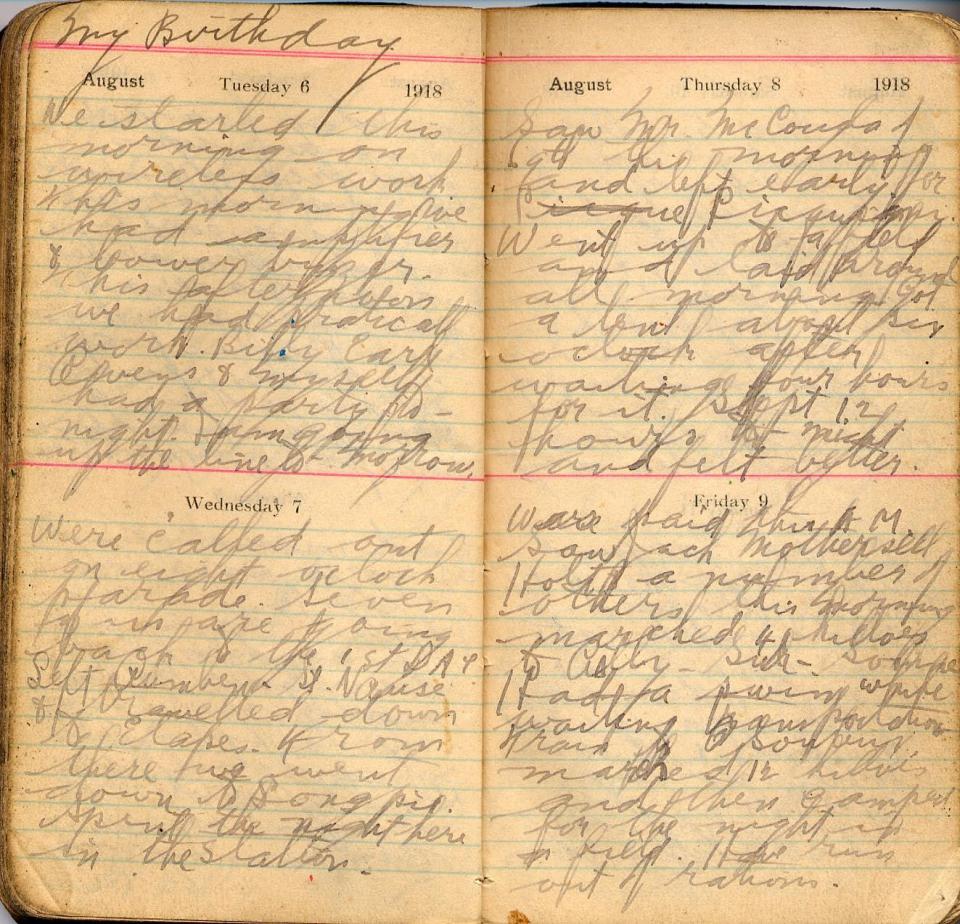 My Birthday
August Tuesday 6 1918
We started this
morning on
wireless work
this morning we
had amplifier
& power buzzer.
This afternoon
we had practical
work. Billy Earl
Cevens & myself
had a party to-
night. I am going
up the line to-morrow.
Wednesday 7
Were called out
on eight oclock
parade. Seven
of us are going
back to the 1st
Left
& travelled down
to Etapes. From
there we went
down to Longpre.
Spent the night here
in the station.
August Thursday 8 1918
Saw Mr. McCouga
this morning
and left early for
Picque Picquigny.
Went up to a field
and laid around
all morning. Got
a tent about six
oclock after
waiting four hours
for it. Slept 12
hours to-night
and felt better.
Friday 9
Were paid this A.M.
Saw Jack Mothersill
Holt & a number of
others this morning
marched 4 kilos
to Ailly-Sur-Somme
Had a swim while
waiting transportation
train to
marched 12 kilos
and then camped
for the night in
a field. Have run
out of rations.